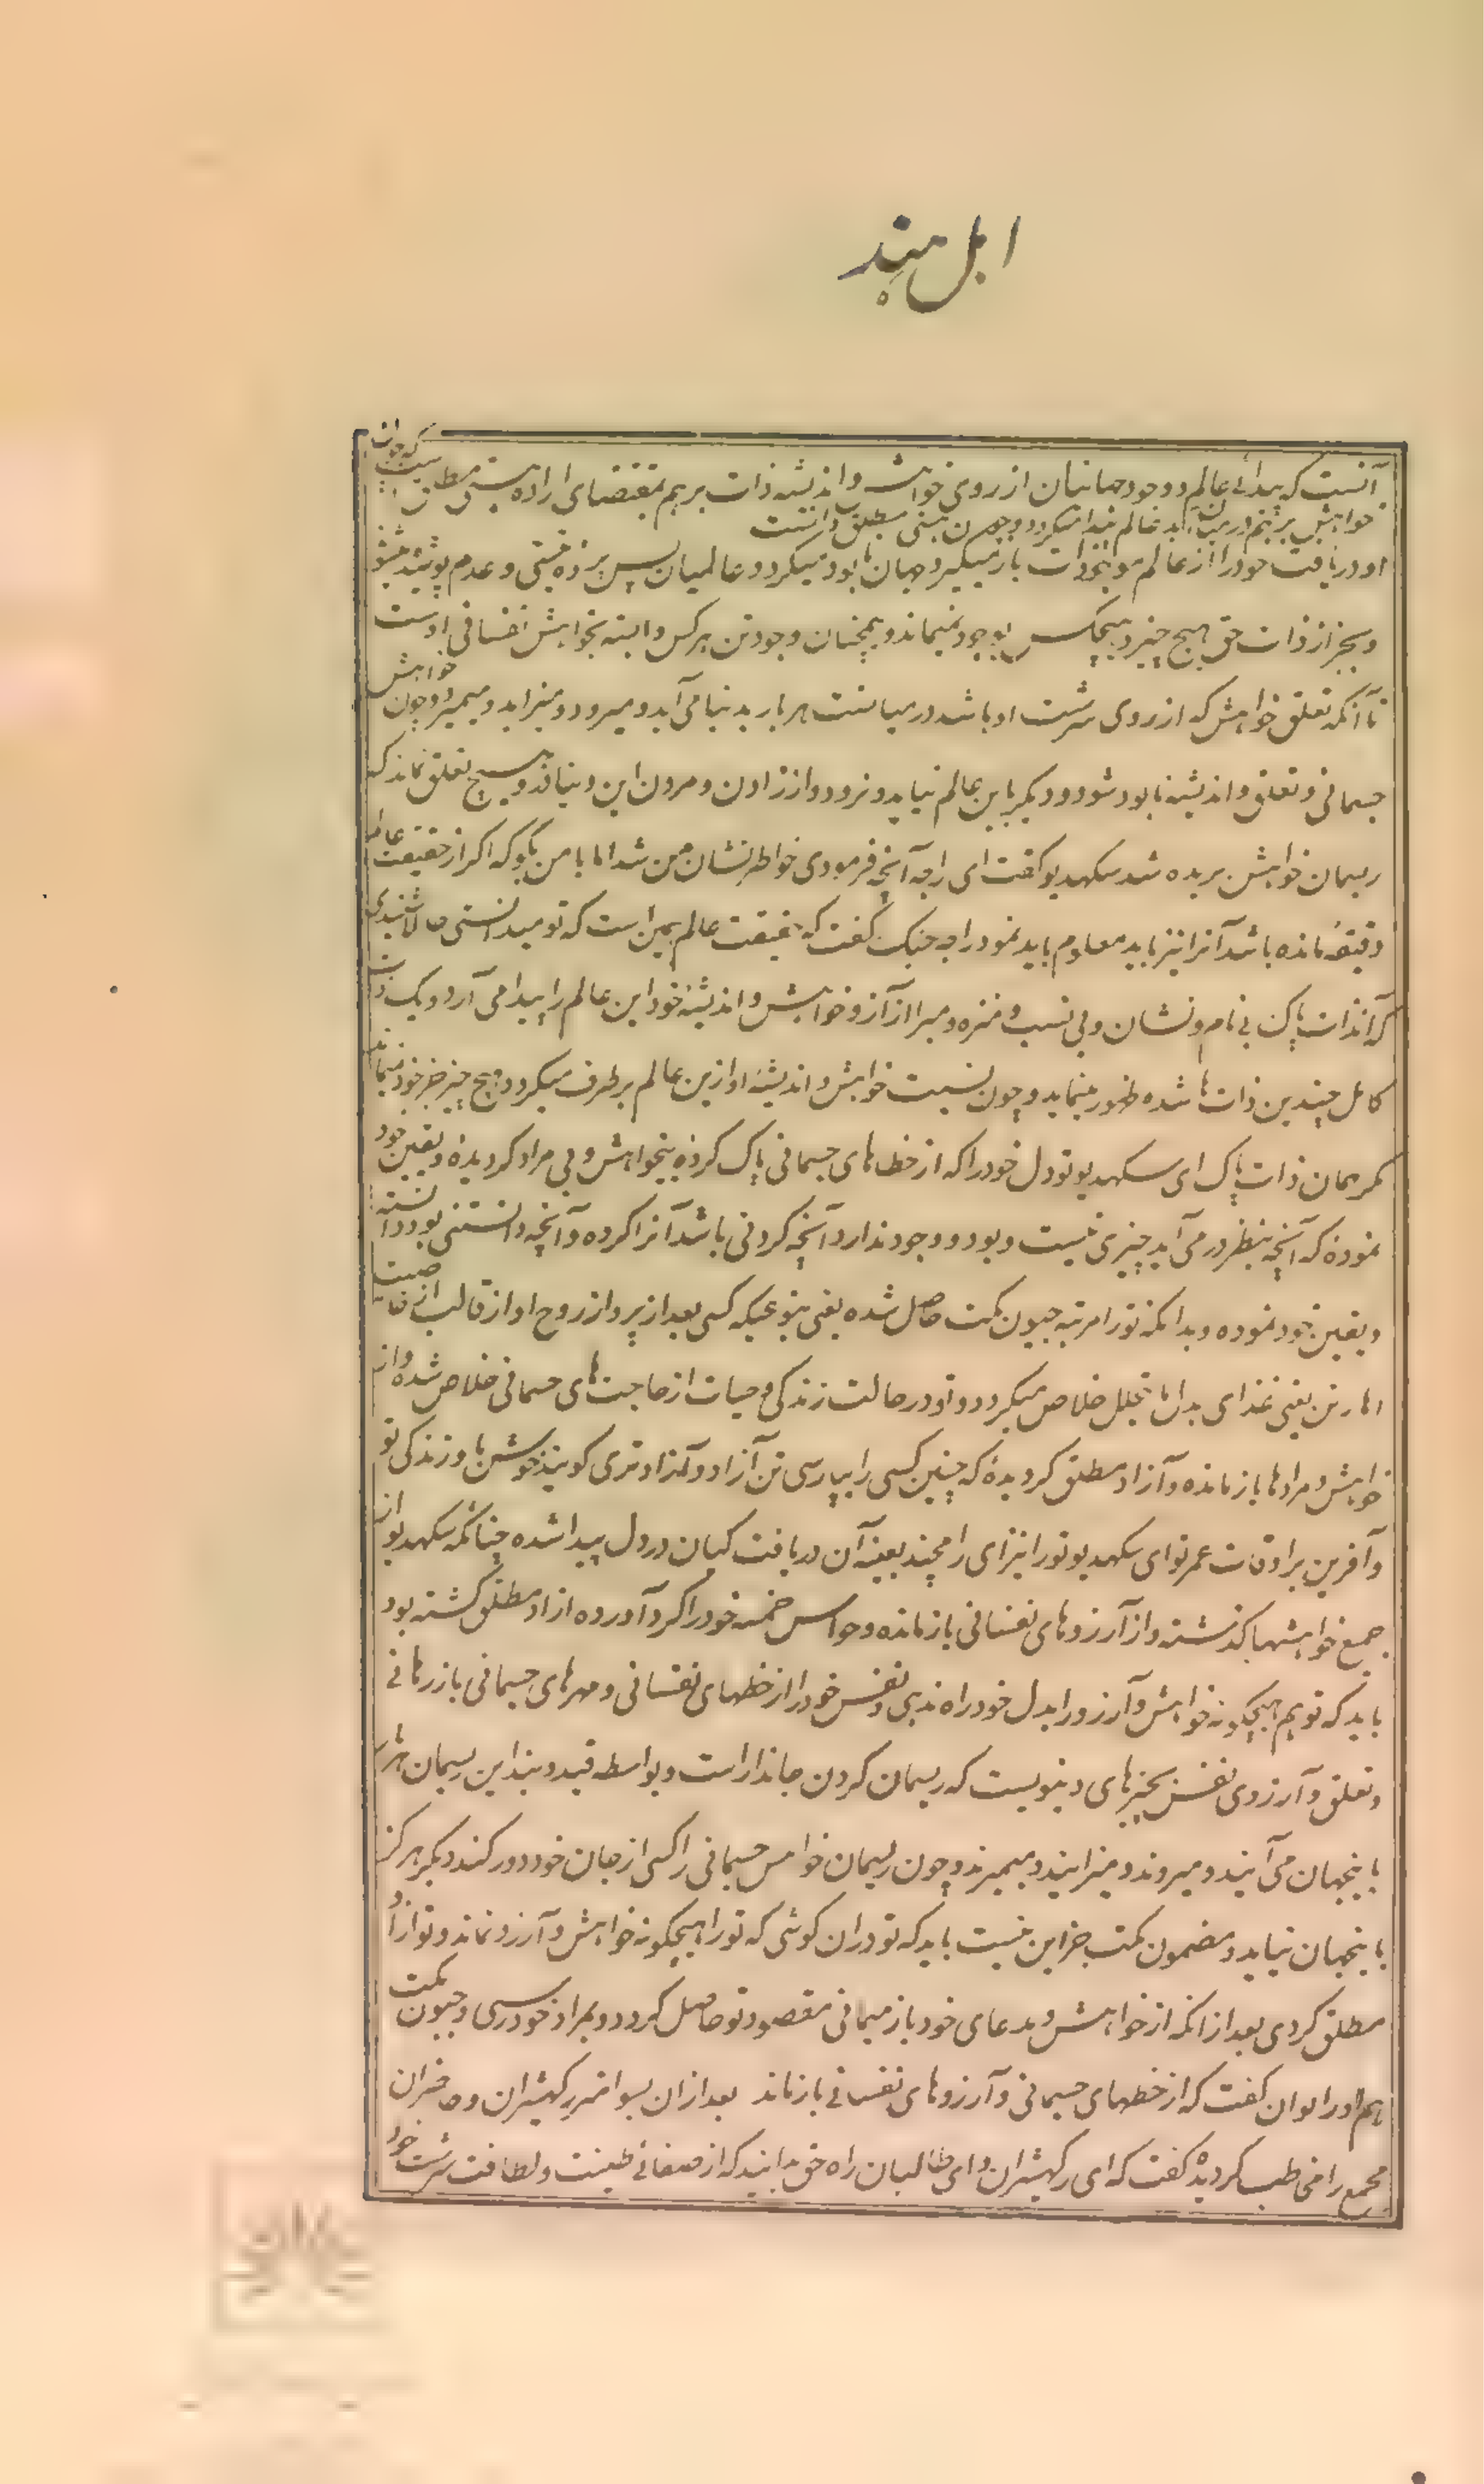 اهل هند
آنست که پیدائے عالم و وجود جهانیان از روی خواهش و اندیشه ذات برهم بمقتضای اراده هستی مطلق است که چون
خواهش برهم درمیان آید عالم پیدا میگردد و چون هستی مطلق دانست
او دریافت خود را از عالم موبخودات باز میگیرد جهان نابود میگردد و عالمیان پس پرده نیستی و عدم پوشیده میشوند
و بجز از ذات حق هیچ چیز و هیچکس بوجود نمیماند و همچنان وجود تن هر کس وابسته بخواهش نفسانی اوست
تا آنکه تعلق خواهش که از روی سرشت او باشد در میانست هر بار بدنیا می آید و میرود و میزاید و میمیرد و چون خواهش
جسمانی و تعلق و اندیشه نابود شود و دیگر باین عالم نیاید و نرود و از زادن و مردن این دنیا او را هیچ تعلق نماند که
ریسمان خواهش بریده شد سکهدیو گفت ای راجه آنچه فرمودی خاطر نشان من شد اما با من بگو که اگر از حقیقت عالم
دقیقهٔ مانده باشد آنرا نیز باید معلوم باید نمود راجه جنک گفت که حقیقت عالم همین است که تو میدانستی حالا شنیدی
که آنذات پاک بی نام و نشان و بی نسب و منزه و مبرا از آز و خواهش و اندیشهٔ خود این عالم را پیدا می آرد و یک ذات
کامل چندین ذات ها شده ظهور مینماید و چون نسبت خواهش و اندیشهٔ او ازین عالم برطرف میگردد هیچ چیز جز خود نمیماند
مگر همان ذات پاک ای سکهدیو تو دل خود را که از خطهای جسمانی پاک کردهٔ بیخواهش و بی مراد گردیدهٔ و یقین خود
نمودهٔ که آنچه بنظر در می آید چیزی نیست و بود و وجود ندارد آنچه کردنی باشد آنرا کرده و آنچه دانستنی بود دانسته
و یقین خود نموده و بدانکه تو را مرتبه جیون مکت حاصل شده یعنی بنوعیکه کسی بعد از پرواز روح او از قالب از حاجت
اهار تن یعنی غذای بدل ما یتحلل خلاص میگردد و تو در حالت زندگی و حیات از حاجت های جسمانی خلاص شده و از
خواهش و مرادها باز مانده و آزاد مطلق گردیدهٔ که چنین کسی را بپارسی تن آزاد و آزاد تری گویند خوش با و زندگی تو
و آفرین بر اوقات عمر تو ای سکهدیو تو را نیز ای رامچند بعینه آن دریافت کیان در دل پیدا شده چنانکه سکهدیو از
جمیع خواهشها گذشته و از آرزوهای نفسانی باز مانده و حواس خمسه خود را گرد آورده ازاد مطلق گشته بود
باید که تو هم هیچگونه خواهش و آرزو را بدل خود راه ندهی و نفس خود را از خطهای نفسانی و مهرهای جسمانی باز رهانے
و تعلق و آرزوی نفس بچیزهای دنیویست که ریسمان گردن جاندار است و بواسطه قید و بند این ریسمان هر بار
باینجهان می آیند و میروند و میزایند و میمیرند و چون ریسمان خواهش جسمانی را کسی از جان خود دور کند دیگر هرگز
باینجهان نیاید و مضمون مکت جز این نیست باید که تو در ان کوشی که تو را هیچگونه خواهش و آرزو نماند و تو ازاد
مطلق گردی بعد از انکه از خواهش و مدعای خود باز میمانی مقصود تو حاصل گردد و بمراد خود رسی و جیون مکت
هم او را توان گفت که از خطهای جسمانی و آرزوهای نفسانے باز ماند بعد ازان بسوامتر رکهیشران و حاضران
مجمع را مخاطب گردیده گفت که ای رکهیشران و ای طالبان راه حق بدانید که از صفائے طینت و لطافت سرشت خود